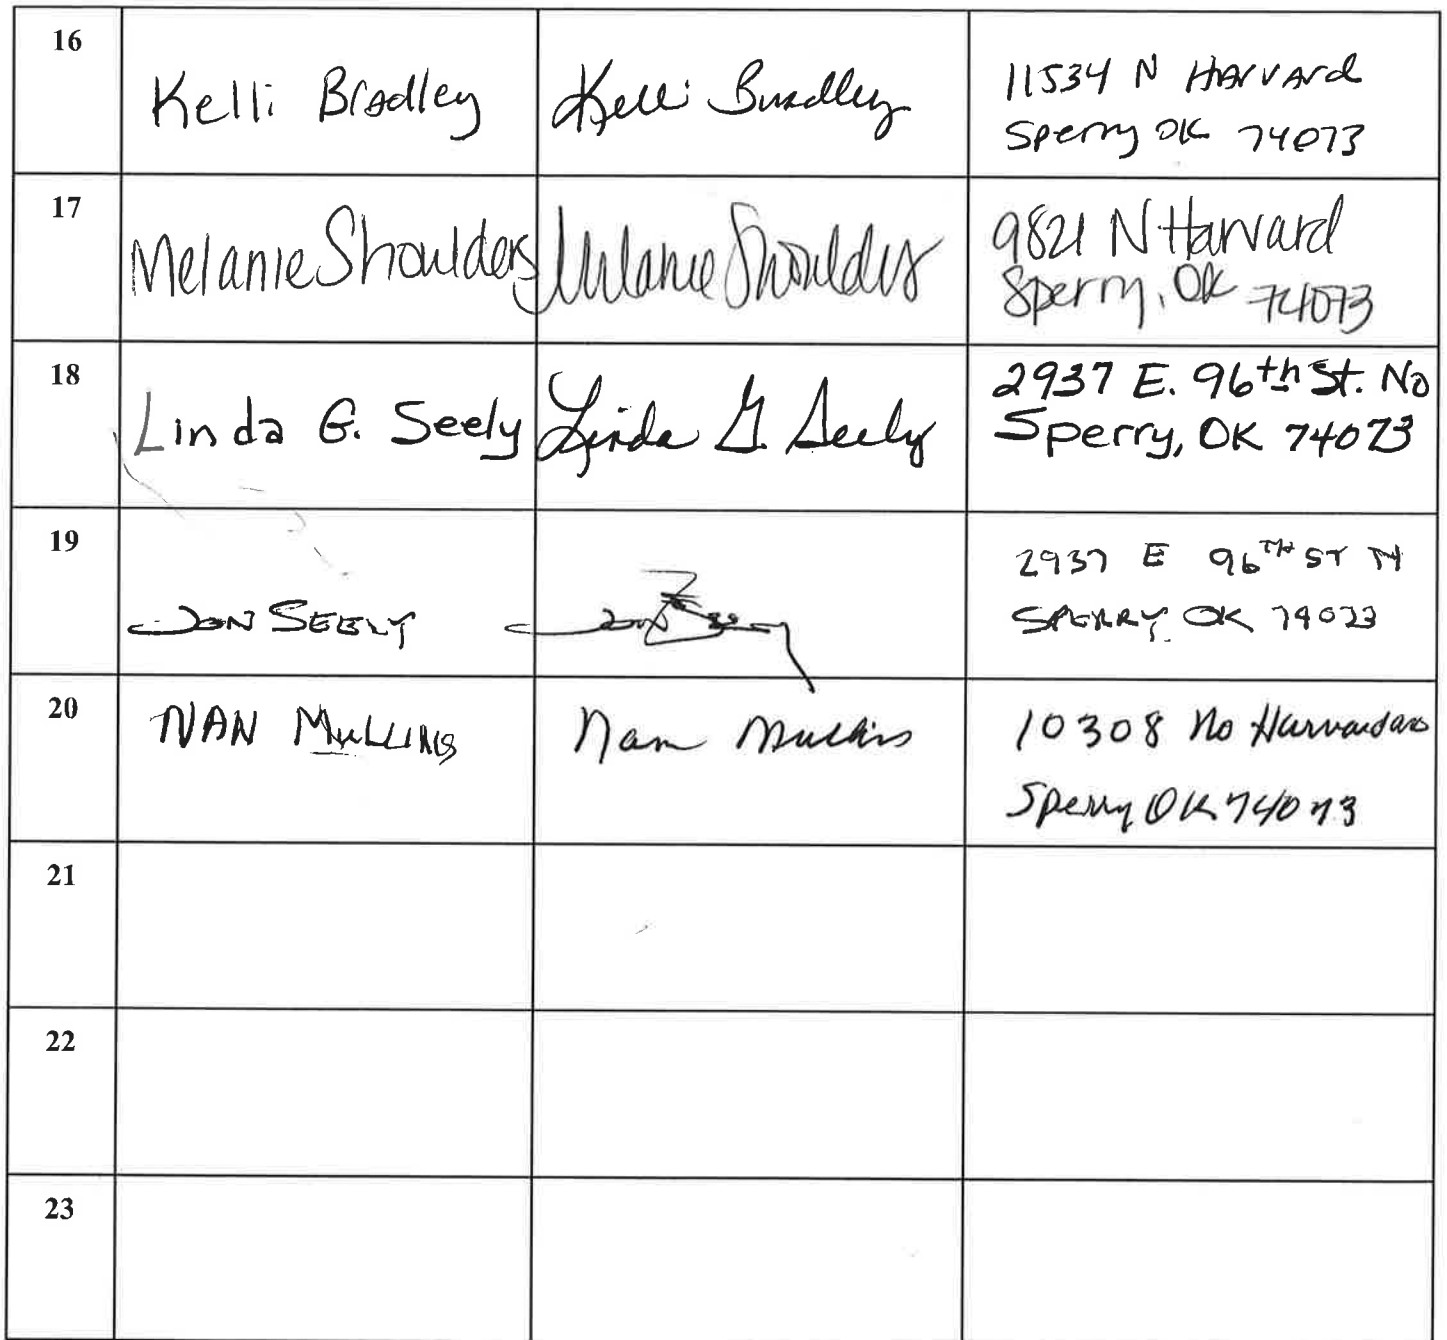 16
Kelli Bradley
Kelli Bradley
11534 N Harvard
Sperry OK 74073
17
Melanie Shoulders
Melanie Shoulders
9821 N Harvard
Sperry, OK 74073
18
Linda G. Seely
Linda G. Seely
2937 E. 96th St. No
Sperry, OK 74073
19
JON SEELY
2937 E 96TH ST N
SPERRY, OK 74073
20
NAN MULLINS
Nan Mullins
10308 No Harvard Ave
Sperry OK 74073
21
22
23